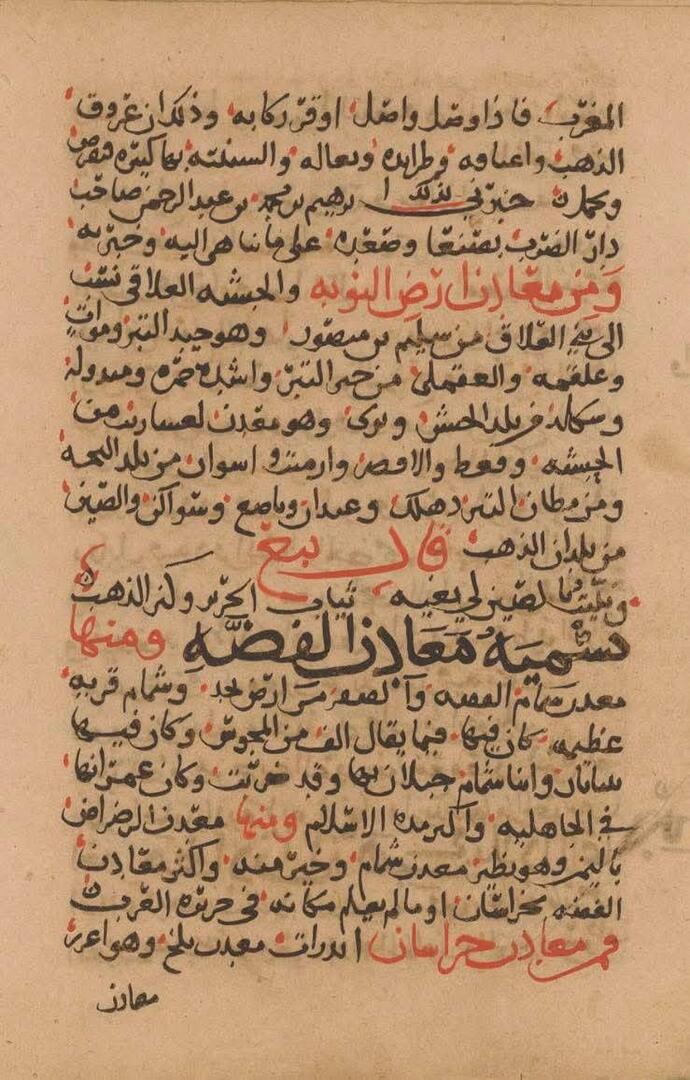 المغرب فاذا وصل واصل اوقر ركابه وذلك ان عروق
الذهب واعيافه وطرايده وبعاله والسنته بها كثيره
خبرني بذلك ابرهيم بن محمد بن عبد الرحمن صاحب
دار الضرب بصنعا وصعده على ما تناهى اليه وخبر به
ومن معادن ارض النوبه والحبشه العلاقي نسب
الى بني العلاق من سليم بن منصور وهو جيد التبر
وعلقمه من خير التبر واشده حمره
من بلد الحبش وهو معدن
الحبشه وقفط والاقصر وارمنت واسوان من بلد البجه
ومن مظان التبر دهلك وعيداب وباضع وسواكن والصين
من بلدان الذهب قال تبع
لصين لي بغيه ثياب الحرير وكنز الذهب
تسميه معادن الفضه ومنها
معدن شمام الفضه والصفر من ارض نجد وشمام قريه
عظيمه كان فيها فيما يقال الف من المجوس وكان فيها
بيتا نار وابنا شمام جبلان بها وقد خربت وكان عمرانها
في الجاهليه واكثر مده الاسلام ومنها معدن الرضراض
باليمن وهو نظير معدن شمام وخير منه واكثر معادن
الفضه بخراسان او ما لم يعلم مكانه في جزيره العرب
فمن معادن خراسان اندراب معدن بلخ وهو اغزر
معادن